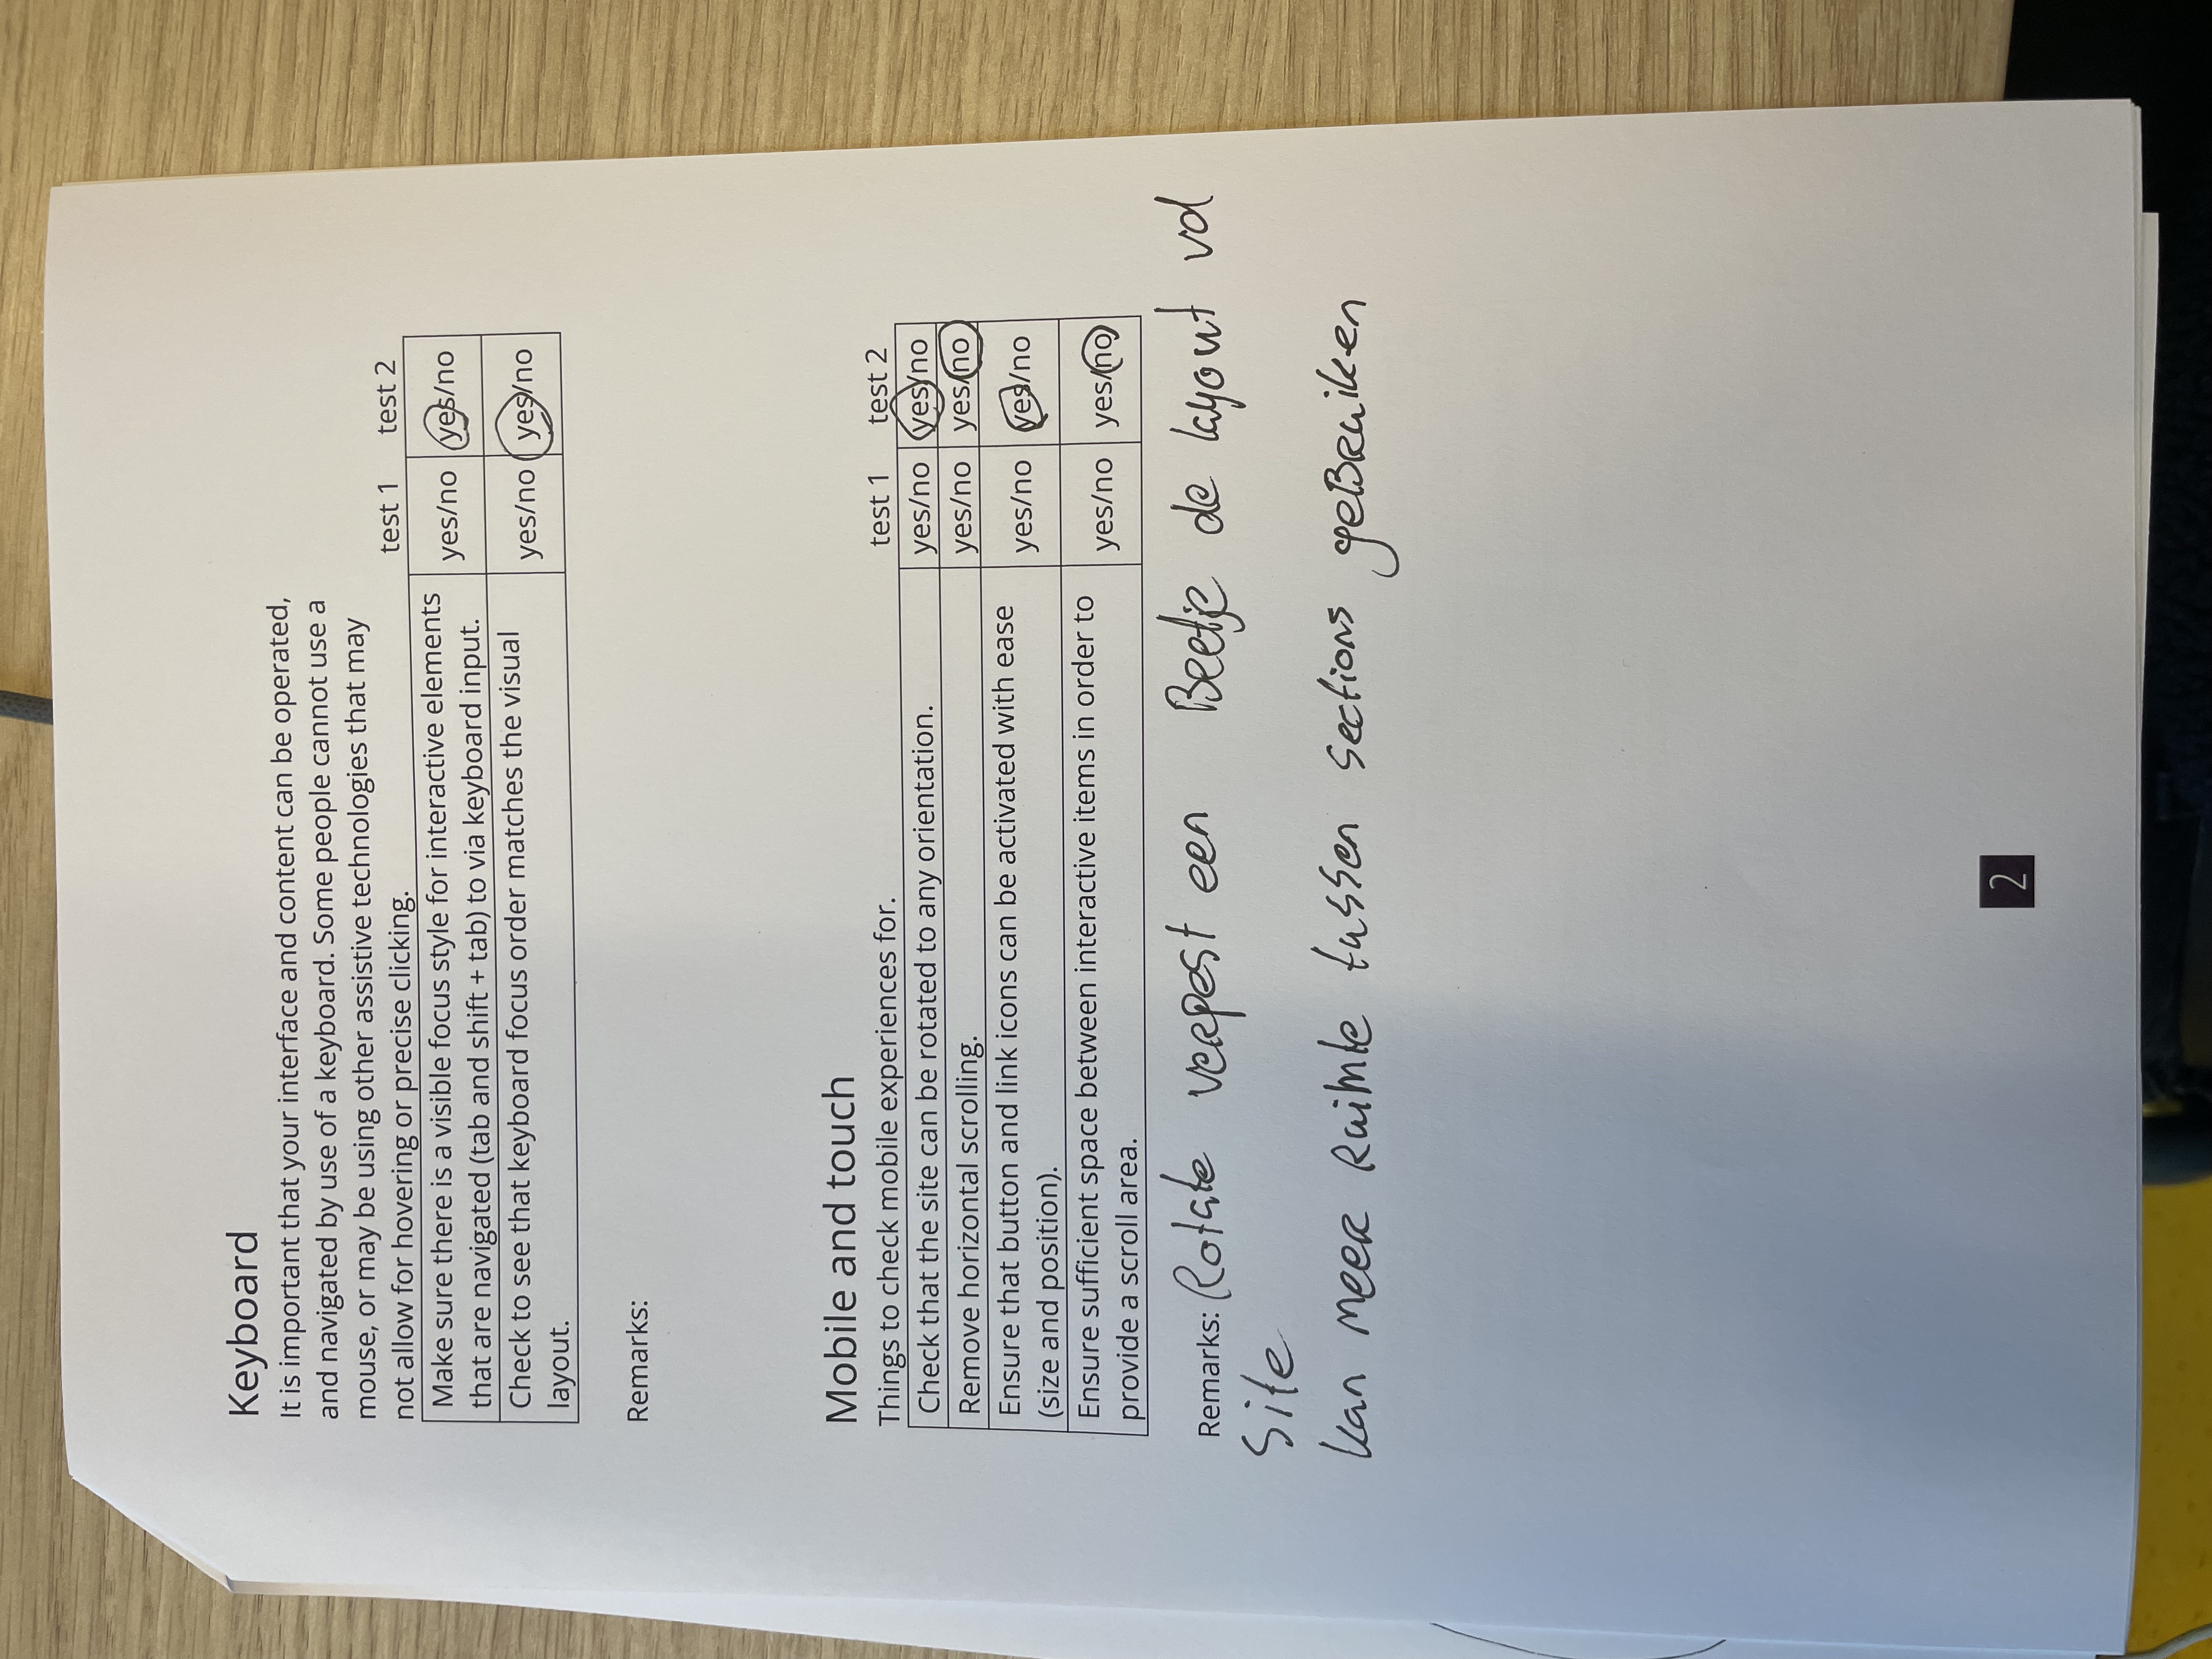 Keyboard
It is important that your interface and content can be operated,
and navigated by use of a keyboard. Some people cannot use a
mouse, or may be using other assistive technologies that may
not allow for hovering or precise clicking.
test 1 test 2
Make sure there is a visible focus style for interactive elements
that are navigated (tab and shift + tab) to via keyboard input.
yes/no yes/no
Check to see that keyboard focus order matches the visual
layout.
yes/no yes/no
Remarks:
Mobile and touch
Things to check mobile experiences for.
test 1 test 2
Check that the site can be rotated to any orientation. yes/no yes/no
Remove horizontal scrolling. yes/no yes/no
Ensure that button and link icons can be activated with ease
(size and position).
yes/no yes/no
Ensure sufficient space between interactive items in order to
provide a scroll area.
yes/no yes/no
Remarks: Rotate verpest een Beetje de layout vd
Site
kan meer Ruimte tussen sections geBruiken
2